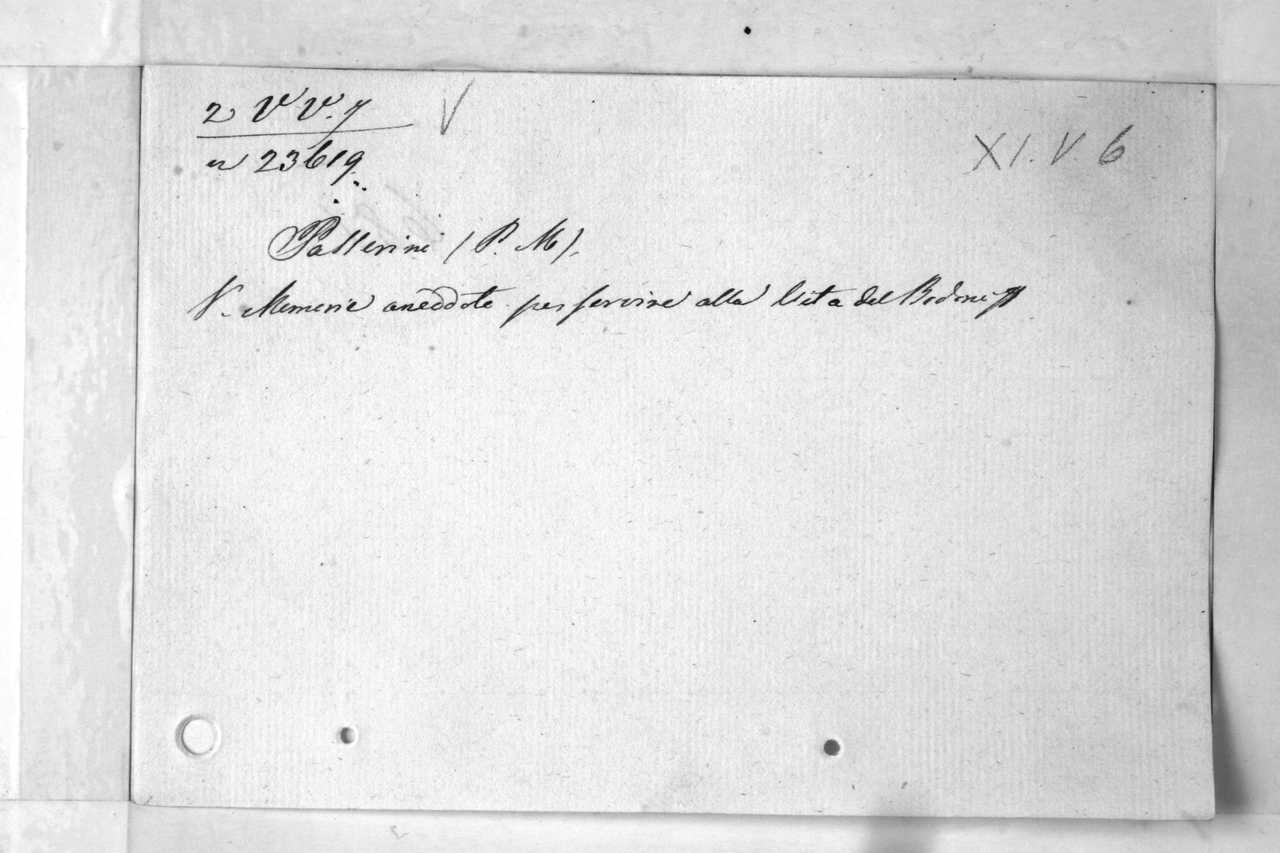 2 V V. 7
V
XI. V. 6
n 23619.
Passerini (P. M).
V. Memorie aneddote per servire alla Vita del Bodoni